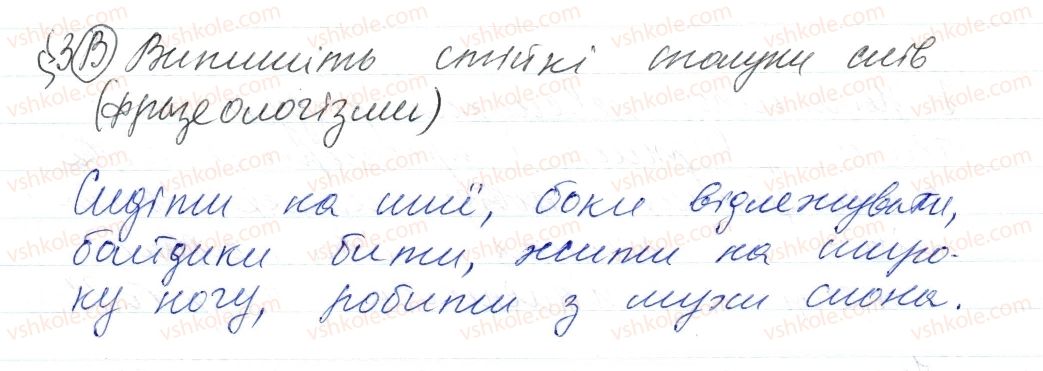 §3 В Випишіть стійкі сполуки слів
(фразеологізми)
Сидіти на шиї, боки відлежувати,
байдики бити, жити на широ-
ку ногу, робити з мухи слона.
vshkole.com